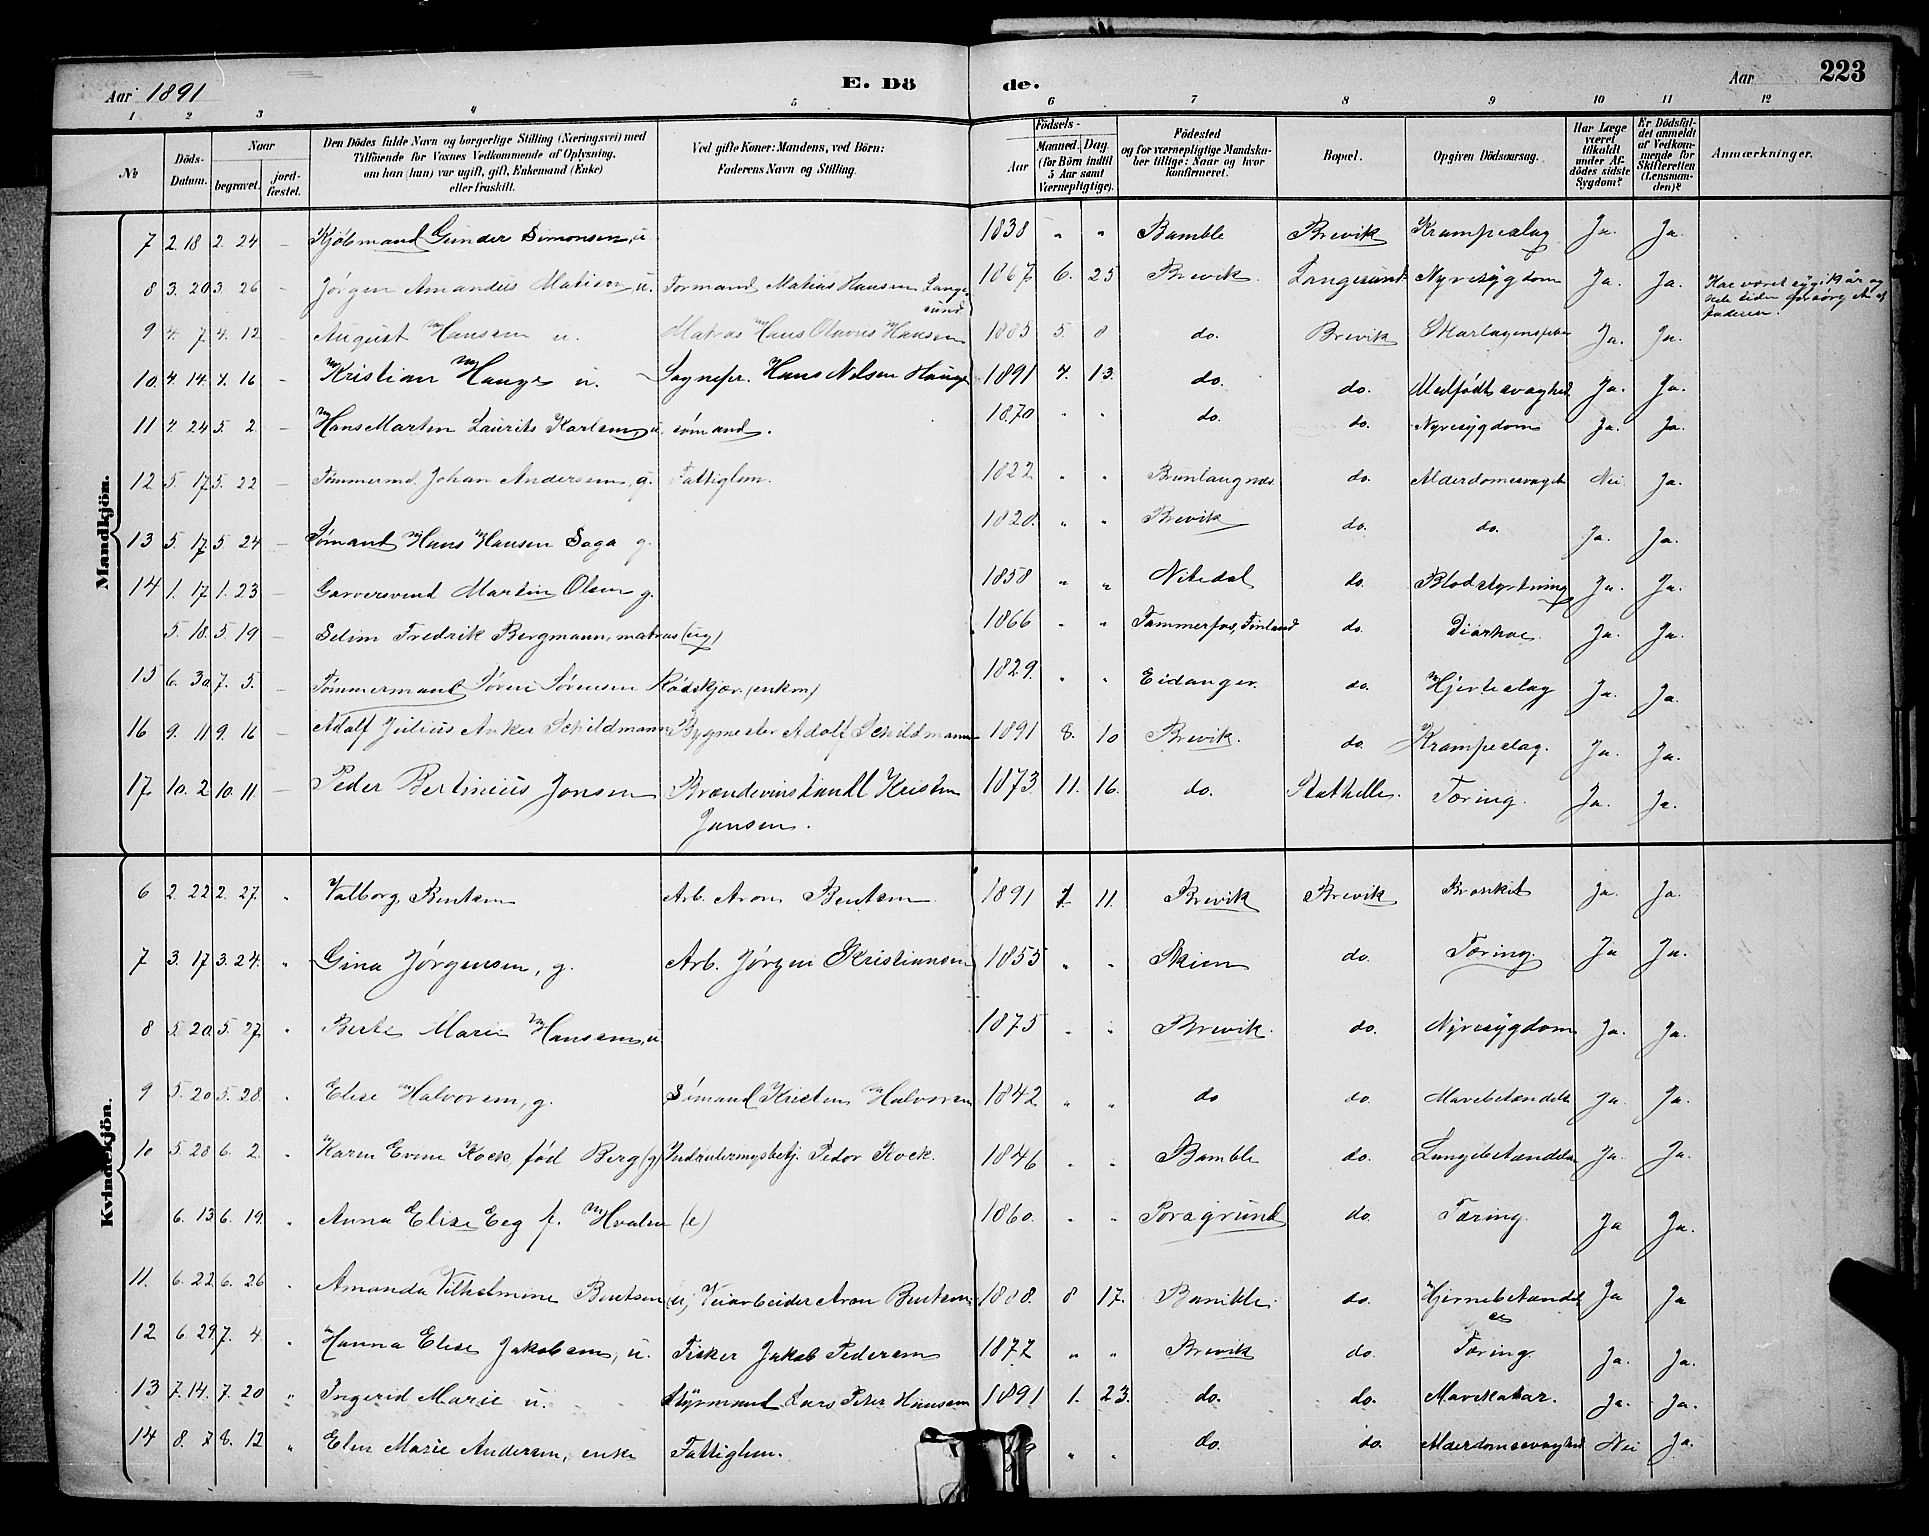 Aar 1891 E. Dö de. Aar 223
1 2 3 4 5 6 7 8 9 10 11 12
№
Döds-Datum.
Naar begravet. jordfæstet.
Den Dödes fulde Navn og borgerlige Stilling (Næringsvei) med
Tilföiende for Voxnes Vedkommende af Oplysning,
om han (hun) var ugift, gift, Enkemand (Enke)
eller fraskilt.
Ved gifte Koner: Mandens, ved Börn:
Faderens Navn og Stilling.
Födsels-
Aar Maaned. Dag.
(for Börn indtil
5 Aar samt
Værnepligtige).
Födested
og for værnepligtige Mandska-
ber tillige: Naar og hvor
konfirmeret.
Bopæl.
Opgiven Dödsaarsag.
Har Læge
været
tilkaldt
under Af-
dödes sidste
Sygdom?
Er Dödsfal-
det anmeldt
af Vedkom-
mende for
Skifteretten
(Lensman-
den)?
Anmærkninger.
Mandkjön.
7 2. 18 2. 24 – Kjøbmand Gunder Simonsen, u. 1838 " " Bamble Brevik Krampeslag Ja. Ja.
8 3. 20 3. 26 – Jørgen Amandus Matisen, u. Formand Matias Hansen Langesund 1867 6. 25 Brevik Langesund Nyresygdom Ja. Ja. Har været syg i år og
faderen.
9 4. 7. 4. 12 – August Hansen u. Matros Hans Olavus Hansen 1885 5. 8 do. Brevik Skarlagensfeber Ja. Ja.
10 4. 14. 4. 16 – Kristian Hauge u. Sognepr. Hans Nilsen Hauge 1891 4. 13. do. do. Medfødt svaghed Ja. Ja.
11 4. 24 5. 2 – Hans Martin Laurits Karlsen, u. sømand. 1870 " " do. do. Nyresygdom Ja. Ja.
12 5. 17. 5. 22 – Tømmermd. Johan Andersen, g. Fattiglem. 1822 " " Brunlangnæs do. Alderdomssvaghed Nei Ja.
13 5. 17. 5. 24 – Sømand Hans Hansen Saga g. 1820. " " Brevik do. do. Ja. Ja.
14 1. 17 1. 23 – Garversvend Martin Olsen g. 1858 " " Nitedal do. Blodstyrtning Ja. Ja.
5. 18. 5. 19 – Selim Fredrik Bergmann, matros (ug) 1866 " " Tammerfos, Finland do. Diarhoe. Ja. Ja.
15 6. 30. 7. 5. – Tømmermand Søren Sørensen Rødskjær. (enkm) 1829. " " Eidanger. do. Hjerteslag Ja. Ja.
16 9. 11. 9. 16 – Adolf Julius Anker Schildmann Bygmester Adolf Schildmann 1891 8. 10 Brevik. do. Krampeslag. Ja. Ja.
17 10. 2 10. 11. – Peder Bertinius Jansen Brændevinshandl Kristen
Jansen. 1873. 11. 16. do. Stathelle. Tæring. Ja. Ja.
Kvindekjön.
6 2. 22 2. 27. " Valborg Bentsen Arb. Aron Bentsen 1891 11. Brevik Brevik Bronkit Ja. Ja.
7 3. 17 3. 24. " Gina Jørgensen, g. Arb. Jørgen Kristiansen 1855 " " Skien do. Tæring. Ja Ja.
8 5. 20. 5. 27. " Berte Marie Hansen, u. 1875 " " Brevik. do. Nyresygdom Ja. Ja.
9 5. 20 5. 28. " Elise Halvorsen, g. Sømand Kristen Halvorsen 1842 " " do do. Mavebetændelse Ja. Ja.
10 5. 28 6. 2. " Karen Evine Kock, fød Berg (g) Indrulleringsbetj. Peder Kock. 1846 " " Bamble do. Lungebetændelse Ja. Ja.
6. 13 6. 19. " Anna Elise Eeg f. Hvalen (e) 1860. " " Porsgrund do. Tæring. Ja Ja.
11. 6. 22 6. 26 " Amanda Vilhelmine Bentsen (u) Veiarbeider Aron Bentsen 1888. 8 17. Bamble do. Hjernebetændelse Ja Ja
12 6. 29 7. 4. " Hanna Elise Jakobsen, u. Fisker Jakob Pedersen 1877 " " Brevik do. Tæring. Ja. Ja.
13 7. 14. 7. 20 " Ingerid Marie u. Styrmand Lars Peter Hansen 1891 1. 23. do. do. Mavekatar. Ja. Ja.
14 8. 7 8. 12 " Elen Marie Andersen, enke Fattiglem. " " do. do. Alderdomssvaghed Nei Ja.